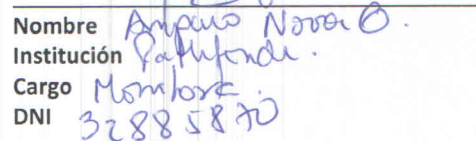 Nombre Amparo Novoa O.
Institución Pathfinder.
Cargo
DNI 32885870